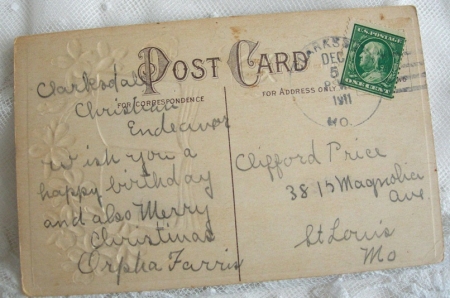 POST CARD
FOR CORRESPONDENCE
FOR ADDRESS ONLY
Clarksdale
Christian
Endeavor
Wish you a
happy birthday
and also Merry
Christmas
Orpha Farris
DEC
5
1911
MO.
U.S. POSTAGE
Clifford Price
3815 Magnolia
Ave
St Louis
Mo